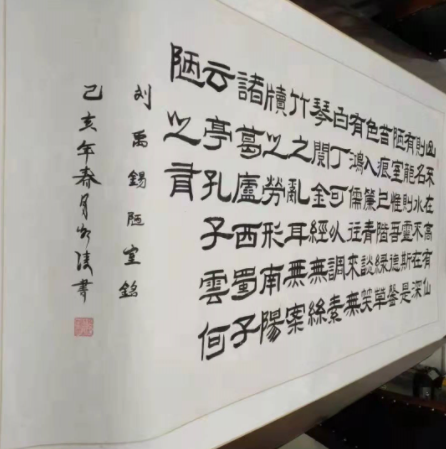 山不在高有仙
則名水不在深
有龍則靈斯是
陋室惟吾德馨
苔痕上階綠草
色入簾青談笑
有鴻儒往來無
白丁可以調素
琴閱金經無絲
竹之亂耳無案
牘之勞形南陽
諸葛廬西蜀子
云亭孔子雲何
陋之有
刘禹錫陋室銘
己亥年春月書